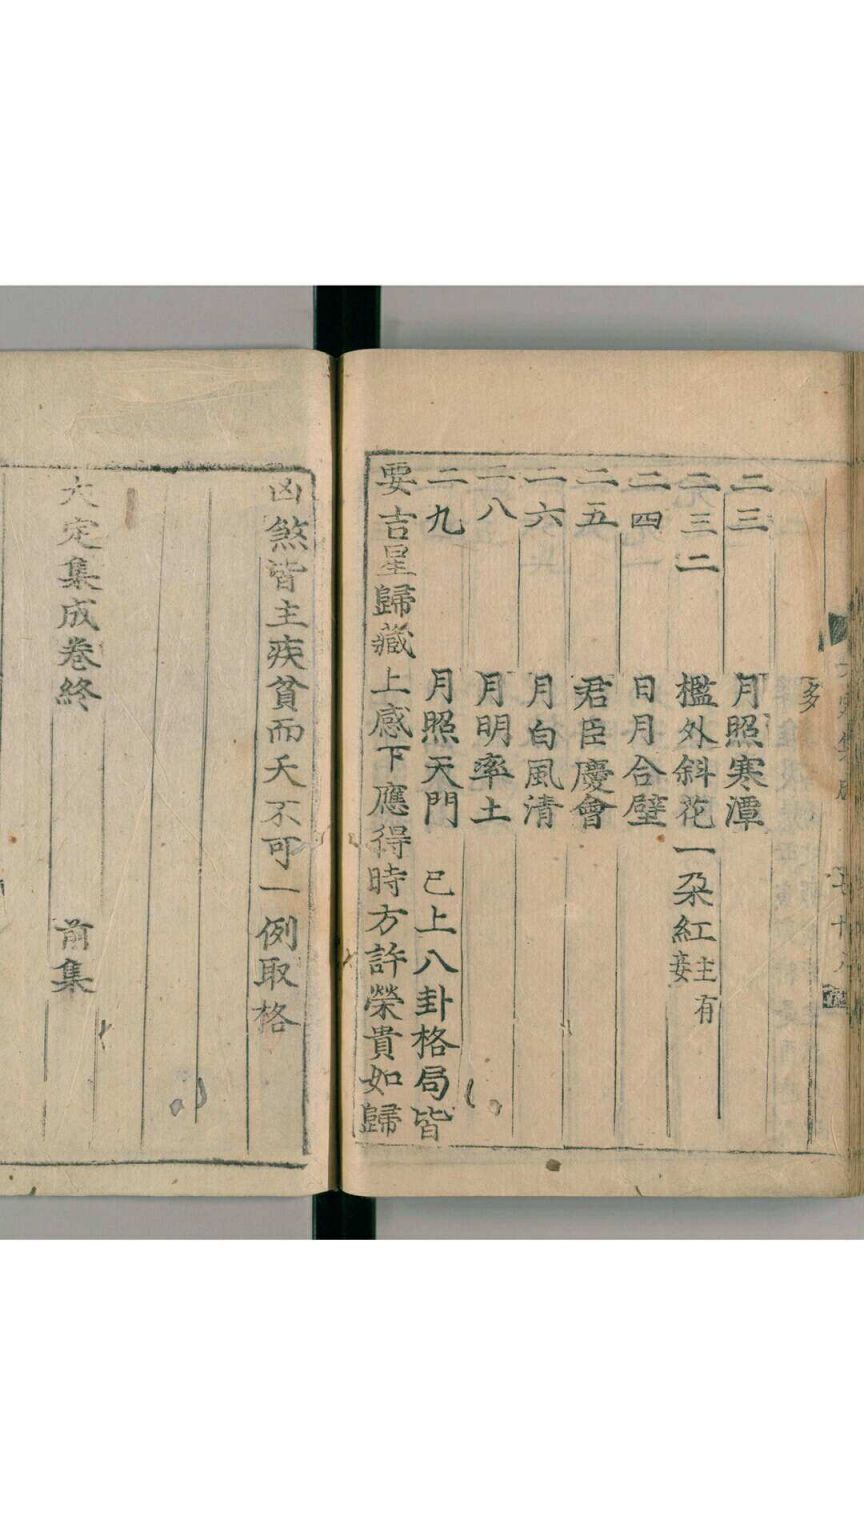 多
二三 月照寒潭
二三二 檻外斜花一朶紅 主有妾
二四 日月合璧
二五 君臣慶會
二六 月白風清
二八 月明率土
二九 月照天門 已上八卦格局皆
要吉星歸藏上感下應得時方許榮貴如歸
凶煞皆主疾貧而夭不可一例取格
大定集成卷終 前集